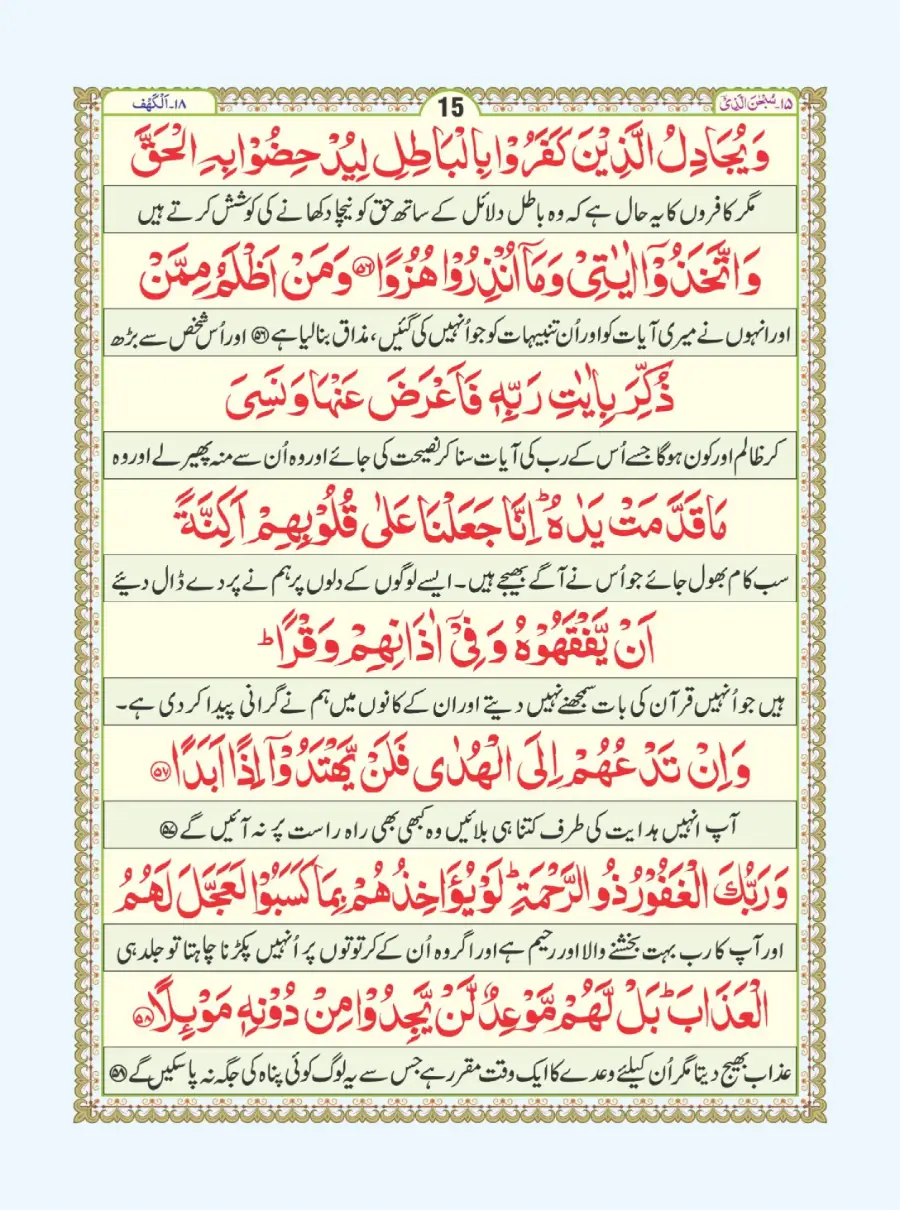 ۱۵۔ سُبْحٰنَ الَّذِیْۤ
15
۱۸۔ اَلْکَهْف
وَ یُجَادِلُ الَّذِیْنَ کَفَرُوْا بِالْبَاطِلِ لِیُدْ حِضُوْا بِہِ الْحَقَّ
مگر کافروں کا یہ حال ہے کہ وہ باطل دلائل کے ساتھ حق کو نیچا دکھانے کی کوشش کرتے ہیں
وَ اتَّخَذُ وْۤا اٰیٰتِیْ وَ مَاۤ اُنْذِرُوْا هُزُوًا ﴿۵۶﴾ وَ مَنْ اَظْلَمُ مِمَّنْ
اور انہوں نے میری آیات کو اور اُن تنبیہات کو جو اُنہیں کی گئیں، مذاق بنا لیا ہے ﴿۵۶﴾ اور اُس شخص سے بڑھ
ذُکِّرَ بِاٰیٰتِ رَبِّہٖ فَاَعْرَضَ عَنْهَا وَ نَسِیَ
کر ظالم اور کون ہوگا جسے اُس کے رب کی آیات سنا کر نصیحت کی جائے اور وہ اُن سے منہ پھیر لے اور وہ
مَا قَدَّ مَتْ یَدٰہُ ؕ اِنَّا جَعَلْنَا عَلٰی قُلُوْبِهِمْ اَکِنَّةً
سب کام بھول جائے جو اُس نے آگے بھیجے ہیں۔ ایسے لوگوں کے دلوں پر ہم نے پردے ڈال دیئے
اَنْ یَّفْقَهُوْہُ وَ فِیْۤ اٰذَانِهِمْ وَقْرًا ؕ
ہیں جو اُنہیں قرآن کی بات سمجھنے نہیں دیتے اور ان کے کانوں میں ہم نے گرانی پیدا کر دی ہے۔
وَ اِنْ تَدْ عُهُمْ اِلَی الْهُدٰی فَلَنْ یَّهْتَدُ وْۤا اِذًا اَبَدًا ﴿۵۷﴾
آپ انہیں ہدایت کی طرف کتنا ہی بلائیں وہ کبھی بھی راہ راست پر نہ آئیں گے ﴿۵۷﴾
وَ رَبُّكَ الْغَفُوْرُ ذُو الرَّحْمَةِ ؕ لَوْ یُؤَاخِذُ هُمْ بِمَا کَسَبُوْا لَعَجَّلَ لَهُمُ
اور آپ کا رب بہت بخشنے والا اور رحیم ہے اور اگر وہ اُن کے کرتوتوں پر اُنہیں پکڑنا چاہتا تو جلد ہی
الْعَذَابَ ؕ بَلْ لَّهُمْ مَّوْعِدٌ لَّنْ یَّجِدُ وْا مِنْ دُوْنِہٖ مَوْىِٕلًا ﴿۵۸﴾
عذاب بھیج دیتا مگر اُن کیلئے وعدے کا ایک وقت مقرر ہے جس سے یہ لوگ کوئی پناہ کی جگہ نہ پا سکیں گے ﴿۵۸﴾